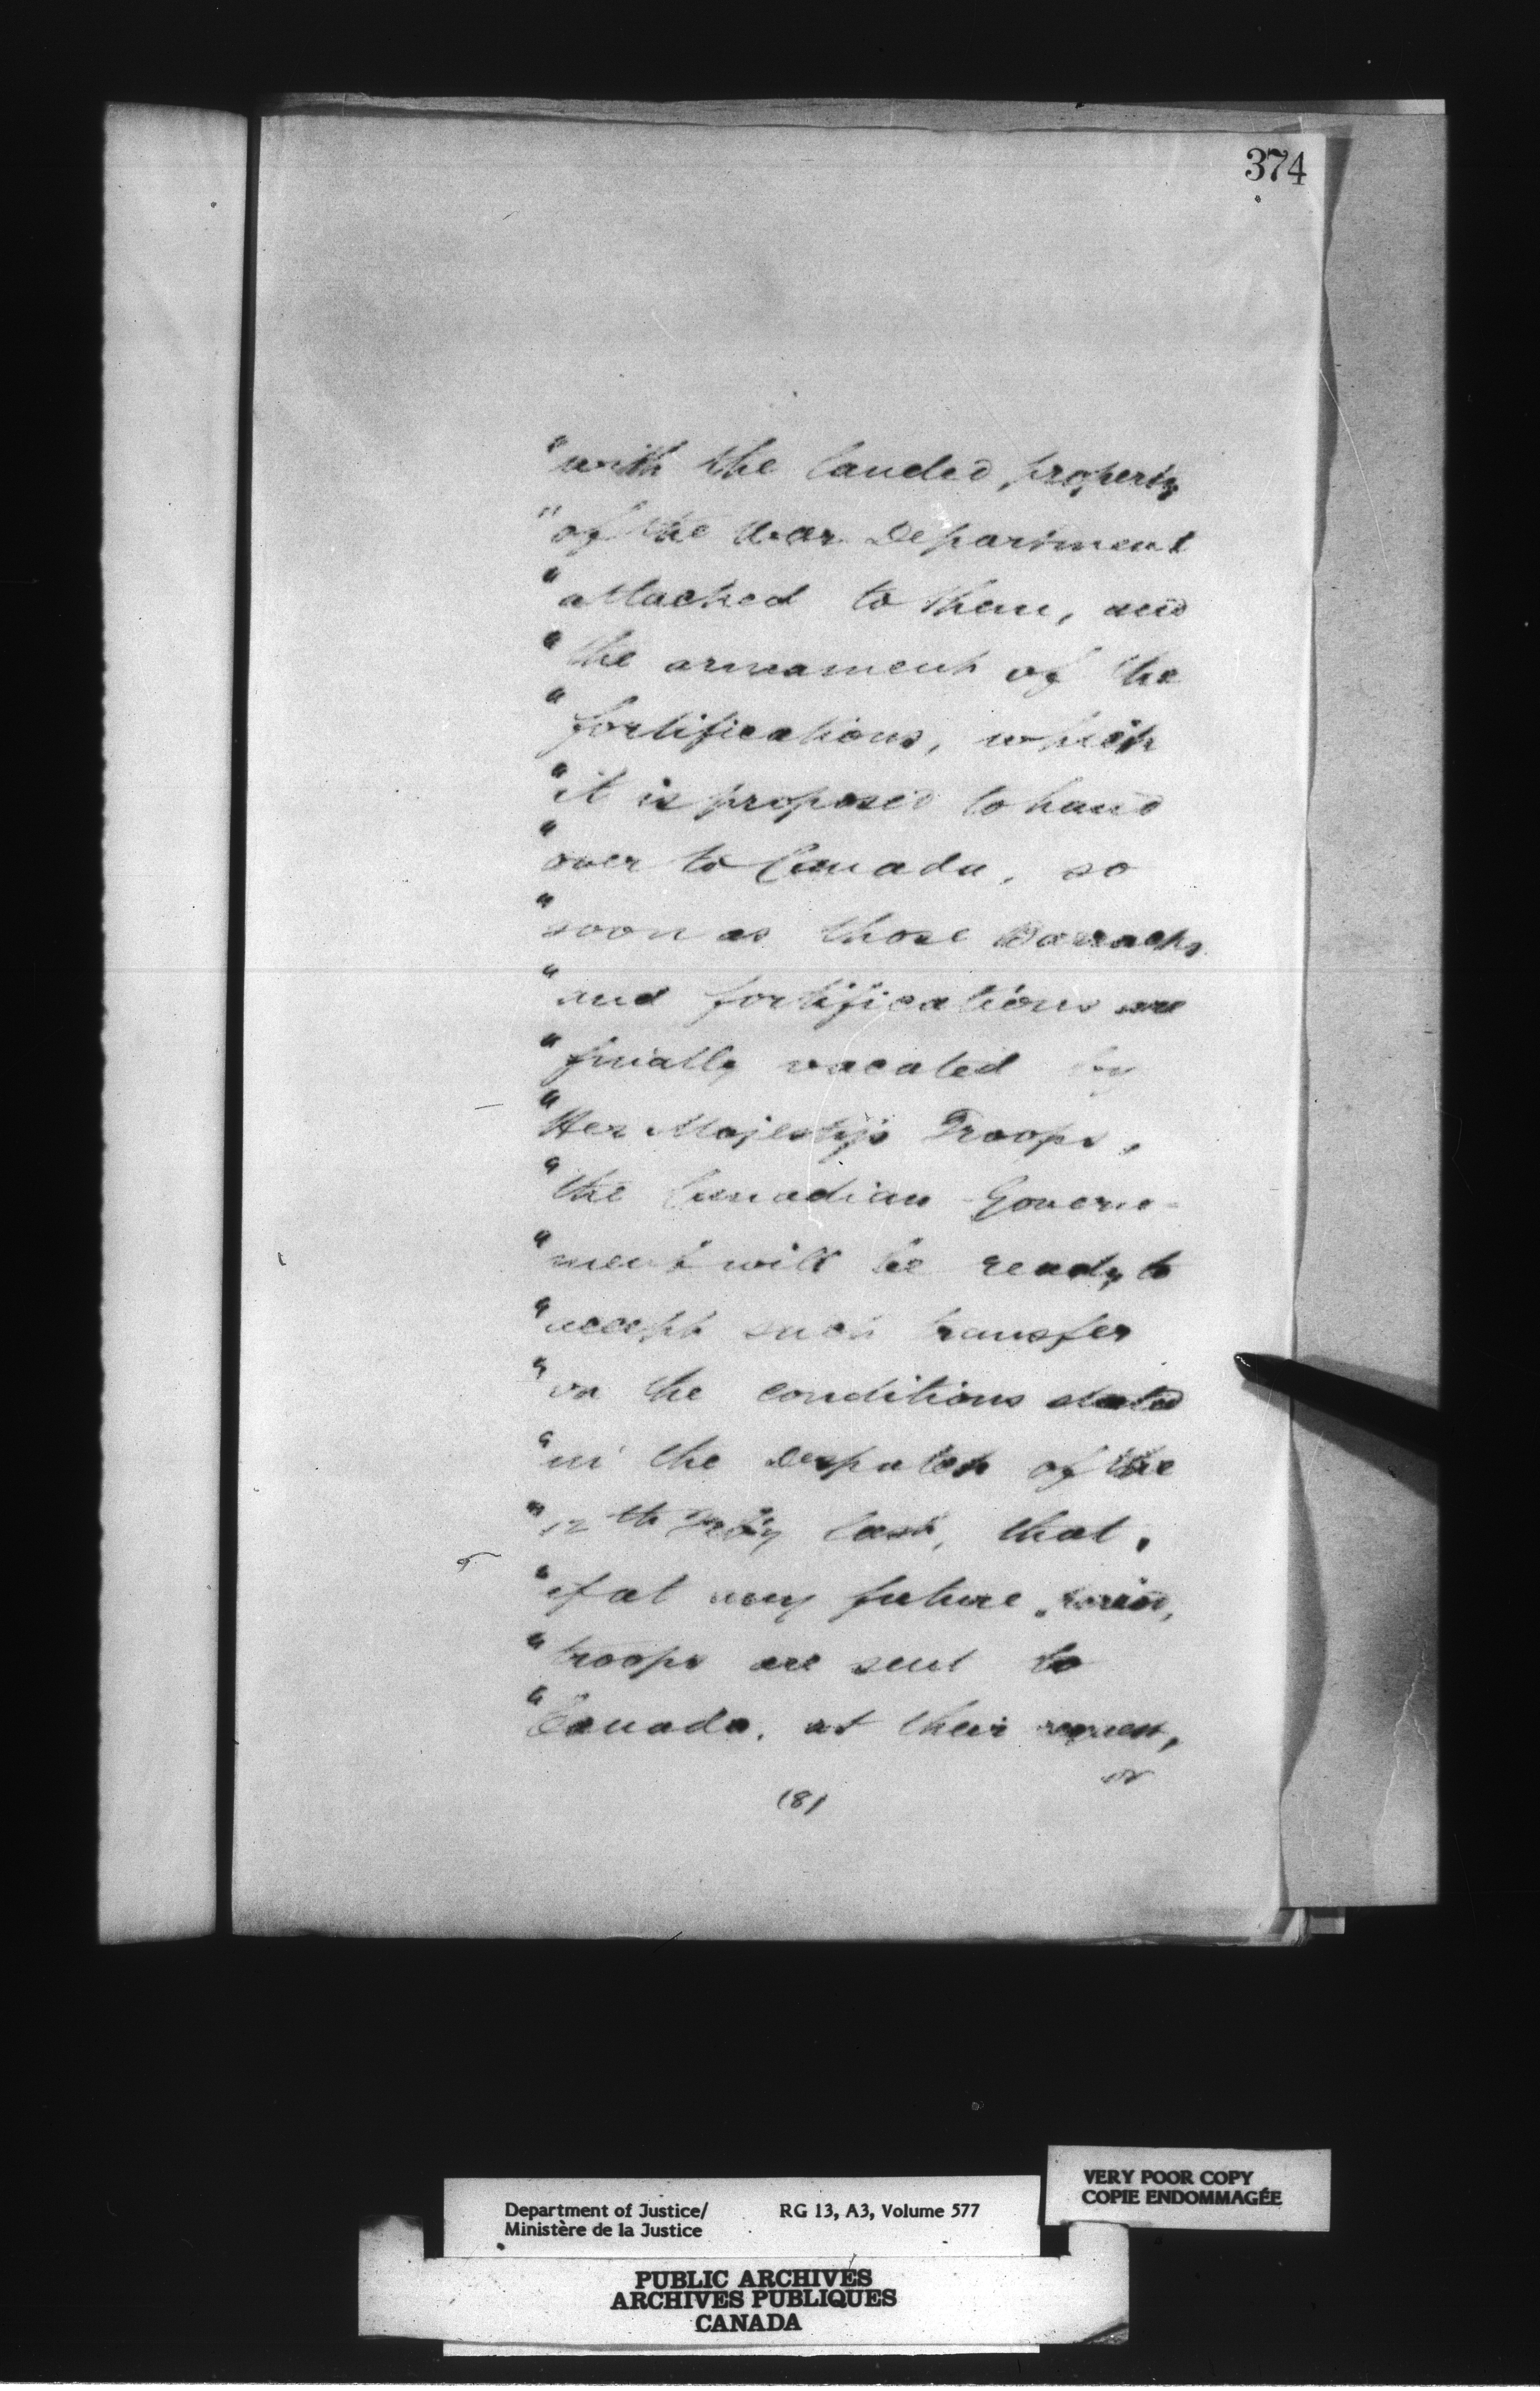 374
"with the landed property
"of the War Department
"attached to them, and
"the armament of the
"fortifications, which
"it is proposed to hand
"over to Canada, so
"soon as those Barracks
"and fortifications are
"finally vacated by
"Her Majesty's Troops,
"the Canadian Govern-
"ment will be ready to
"accept such transfer
"on the conditions stated
"in the Despatch of the
"12th Feby last, that,
"if at any future
"troops are sent to
"Canada, at their request,
or
(8)
VERY POOR COPY
COPIE ENDOMMAGÉE
Department of Justice/ RG 13, A3, Volume 577
Ministère de la Justice
PUBLIC ARCHIVES
ARCHIVES PUBLIQUES
CANADA